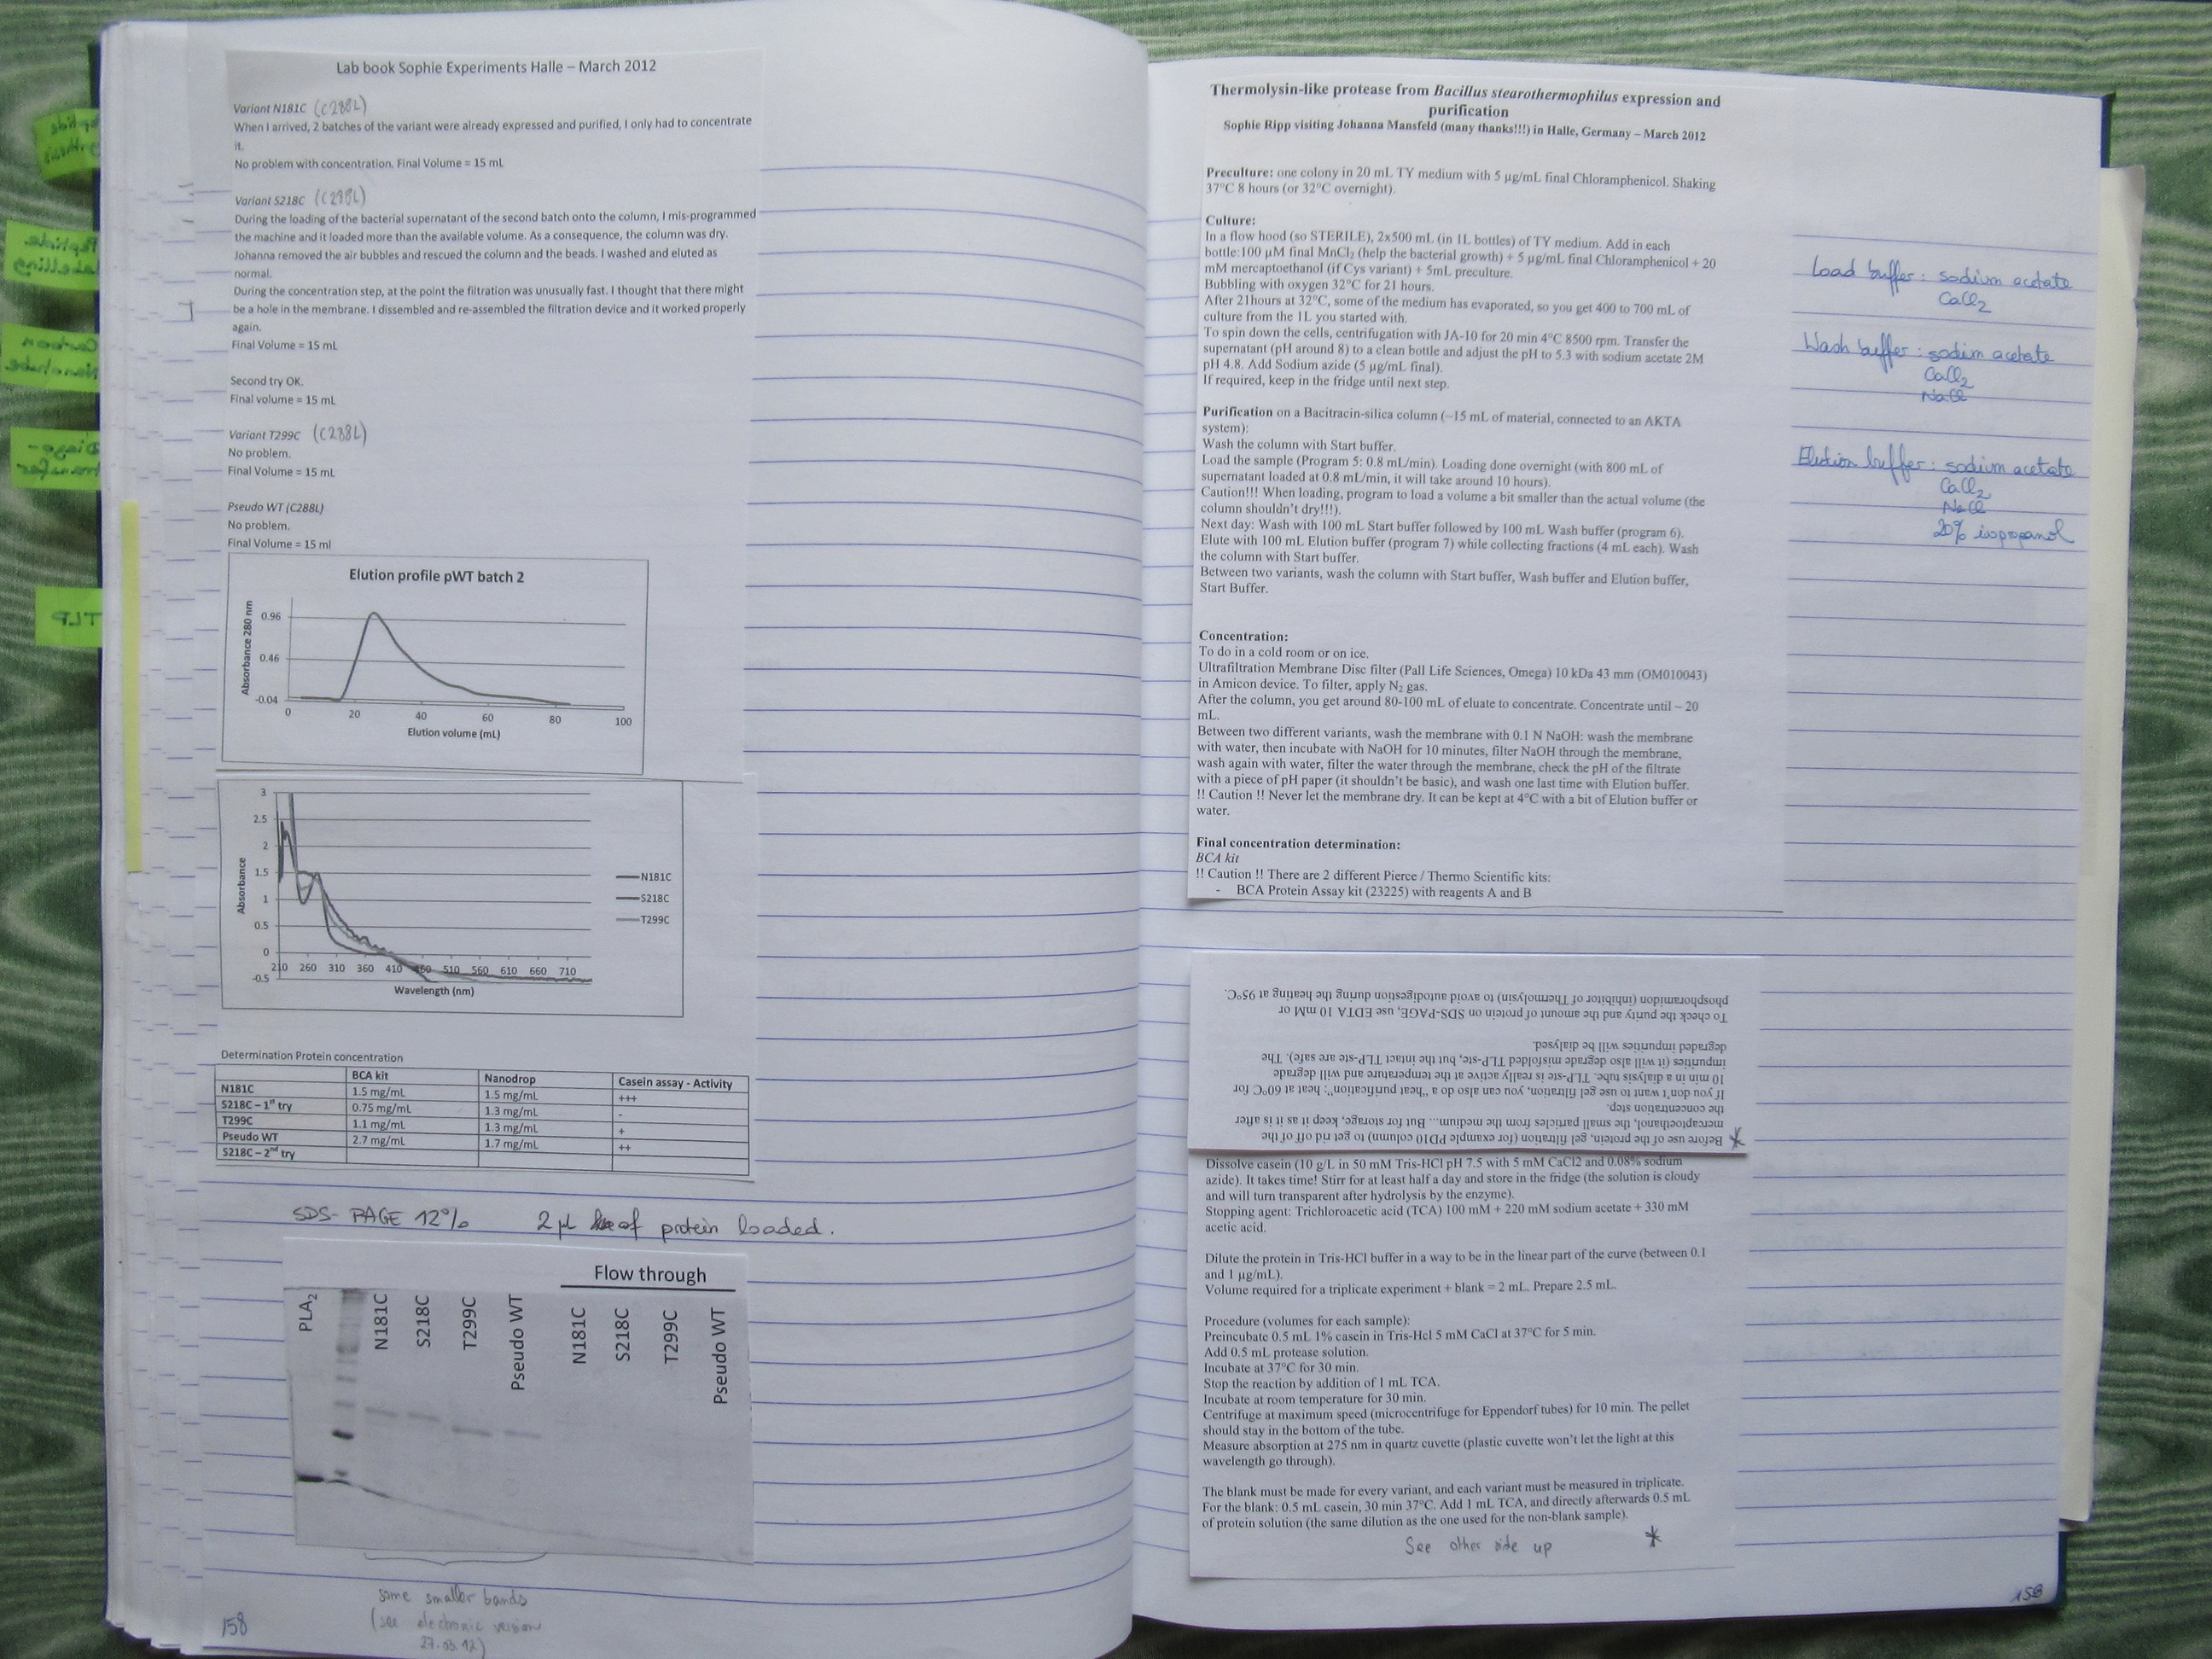 Lab book Sophie Experiments Halle – March 2012
Variant N181C (C288L)
When I arrived, 2 batches of the variant were already expressed and purified, I only had to concentrate
it.
No problem with concentration. Final Volume = 15 mL
Variant S218C (C288L)
During the loading of the bacterial supernatant of the second batch onto the column, I mis-programmed
the machine and it loaded more than the available volume. As a consequence, the column was dry.
Johanna removed the air bubbles and rescued the column and the beads. I washed and eluted as
normal.
During the concentration step, at the point the filtration was unusually fast. I thought that there might
be a hole in the membrane. I dissembled and re-assembled the filtration device and it worked properly
again.
Final Volume = 15 mL
Second try OK.
Final volume = 15 mL
Variant T299C (C288L)
No problem.
Final Volume = 15 mL
Pseudo WT (C288L)
No problem.
Final Volume = 15 ml
Elution profile pWT batch 2
Absorbance 280 nm
0.96
0.46
-0.04
0 20 40 60 80 100
Elution volume (mL)
Absorbance
3
2.5
2
1.5
1
0.5
0
-0.5
210 260 310 360 410 460 510 560 610 660 710
Wavelength (nm)
N181C
S218C
T299C
Determination Protein concentration
BCA kit Nanodrop Casein assay - Activity
N181C 1.5 mg/mL 1.5 mg/mL +++
S218C – 1st try 0.75 mg/mL 1.3 mg/mL -
T299C 1.1 mg/mL 1.3 mg/mL +
Pseudo WT 2.7 mg/mL 1.7 mg/mL ++
S218C – 2nd try
SDS-PAGE 12% 2 µl of protein loaded.
Flow through
PLA2 N181C S218C T299C Pseudo WT N181C S218C T299C Pseudo WT
some smaller bands
(see electronic version
27.03.12)
158
Thermolysin-like protease from Bacillus stearothermophilus expression and
purification
Sophie Ripp visiting Johanna Mansfeld (many thanks!!!) in Halle, Germany – March 2012
Preculture: one colony in 20 mL TY medium with 5 µg/mL final Chloramphenicol. Shaking
37°C 8 hours (or 32°C overnight).
Culture:
In a flow hood (so STERILE), 2x500 mL (in 1L bottles) of TY medium. Add in each
bottle:100 µM final MnCl2 (help the bacterial growth) + 5 µg/mL final Chloramphenicol + 20
mM mercaptoethanol (if Cys variant) + 5mL preculture.
Bubbling with oxygen 32°C for 21 hours.
After 21hours at 32°C, some of the medium has evaporated, so you get 400 to 700 mL of
culture from the 1L you started with.
To spin down the cells, centrifugation with JA-10 for 20 min 4°C 8500 rpm. Transfer the
supernatant (pH around 8) to a clean bottle and adjust the pH to 5.3 with sodium acetate 2M
pH 4.8. Add Sodium azide (5 µg/mL final).
If required, keep in the fridge until next step.
Purification on a Bacitracin-silica column (~15 mL of material, connected to an AKTA
system):
Wash the column with Start buffer.
Load the sample (Program 5: 0.8 mL/min). Loading done overnight (with 800 mL of
supernatant loaded at 0.8 mL/min, it will take around 10 hours).
Caution!!! When loading, program to load a volume a bit smaller than the actual volume (the
column shouldn't dry!!!).
Next day: Wash with 100 mL Start buffer followed by 100 mL Wash buffer (program 6).
Elute with 100 mL Elution buffer (program 7) while collecting fractions (4 mL each). Wash
the column with Start buffer.
Between two variants, wash the column with Start buffer, Wash buffer and Elution buffer,
Start Buffer.
Concentration:
To do in a cold room or on ice.
Ultrafiltration Membrane Disc filter (Pall Life Sciences, Omega) 10 kDa 43 mm (OM010043)
in Amicon device. To filter, apply N2 gas.
After the column, you get around 80-100 mL of eluate to concentrate. Concentrate until ~ 20
mL.
Between two different variants, wash the membrane with 0.1 N NaOH: wash the membrane
with water, then incubate with NaOH for 10 minutes, filter NaOH through the membrane,
wash again with water, filter the water through the membrane, check the pH of the filtrate
with a piece of pH paper (it shouldn't be basic), and wash one last time with Elution buffer.
!! Caution !! Never let the membrane dry. It can be kept at 4°C with a bit of Elution buffer or
water.
Final concentration determination:
BCA kit
!! Caution !! There are 2 different Pierce / Thermo Scientific kits:
- BCA Protein Assay kit (23225) with reagents A and B
Load buffer: sodium acetate
CaCl2
Wash buffer: sodium acetate
CaCl2
NaCl
Elution buffer: sodium acetate
CaCl2
NaCl
20% isopropanol
* Before use of the protein, gel filtration (for example PD10 column) to get rid off of the
mercaptoethanol, the small particles from the medium... But for storage, keep it as it is after
the concentration step.
If you don't want to use gel filtration, you can also do a "heat purification": heat at 60°C for
10 min in a dialysis tube. TLP-ste is really active at the temperature and will degrade
impurities (it will also degrade misfolded TLP-ste, but the intact TLP-ste are safe). The
degraded impurities will be dialysed.
To check the purity and the amount of protein on SDS-PAGE, use EDTA 10 mM or
phosphoramidon (inhibitor of Thermolysin) to avoid autodigestion during the heating at 95°C.
Dissolve casein (10 g/L in 50 mM Tris-HCl pH 7.5 with 5 mM CaCl2 and 0.08% sodium
azide). It takes time! Stirr for at least half a day and store in the fridge (the solution is cloudy
and will turn transparent after hydrolysis by the enzyme).
Stopping agent: Trichloroacetic acid (TCA) 100 mM + 220 mM sodium acetate + 330 mM
acetic acid.
Dilute the protein in Tris-HCl buffer in a way to be in the linear part of the curve (between 0.1
and 1 µg/mL).
Volume required for a triplicate experiment + blank = 2 mL. Prepare 2.5 mL.
Procedure (volumes for each sample):
Preincubate 0.5 mL 1% casein in Tris-Hcl 5 mM CaCl at 37°C for 5 min.
Add 0.5 mL protease solution.
Incubate at 37°C for 30 min.
Stop the reaction by addition of 1 mL TCA.
Incubate at room temperature for 30 min.
Centrifuge at maximum speed (microcentrifuge for Eppendorf tubes) for 10 min. The pellet
should stay in the bottom of the tube.
Measure absorption at 275 nm in quartz cuvette (plastic cuvette won't let the light at this
wavelength go through).
The blank must be made for every variant, and each variant must be measured in triplicate.
For the blank: 0.5 mL casein, 30 min 37°C. Add 1 mL TCA, and directly afterwards 0.5 mL
of protein solution (the same dilution as the one used for the non-blank sample).
See other side up *
158
Peptide
Labelling
Carbon
Nanotube
Diago-
transfer
TLP